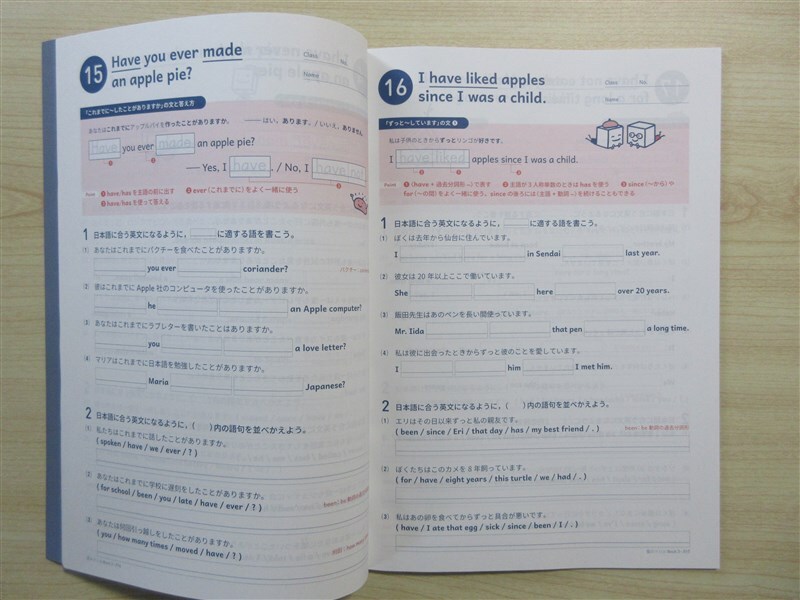 15
Have you ever made
an apple pie?
Class
No.
Name
「これまでに〜したことがありますか」の文と答え方
あなたはこれまでにアップルパイを作ったことがありますか。 ──はい、あります。/ いいえ、ありません。
Have you ever made an apple pie?
— Yes, I have. / No, I have not
Point ❶ have/hasを主語の前に出す ❷ ever（これまでに）をよく一緒に使う
❸ have/hasを使って答える
1 日本語に合う英文になるように，＿＿に適する語を書こう。
(1) あなたはこれまでにパクチーを食べたことがありますか。
you ever coriander?
パクチー
(2) 彼はこれまでに Apple 社のコンピュータを使ったことがありますか。
he an Apple computer?
(3) あなたはこれまでにラブレターを書いたことはありますか。
you a love letter?
(4) マリアはこれまでに日本語を勉強したことがありますか。
Maria Japanese?
2 日本語に合う英文になるように，（ ）内の語句を並べかえよう。
(1) 私たちはこれまでに話したことがありますか。
( spoken / have / we / ever / ? )
(2) あなたはこれまでに学校に遅刻をしたことがありますか。
( for school / been / you / late / have / ever / ? )
(3) あなたは何回引っ越しをしたことがありますか。
( you / how many times / moved / have / ? )
16
I have liked apples
since I was a child.
Class
No.
Name
「ずっと〜しています」の文 ❶
私は子供のときからずっとリンゴが好きです。
I have liked apples since I was a child.
Point ❶〈have + 過去分詞形〜〉で表す ❷ 主語が3人称単数のときは has を使う ❸ since（〜から）や
for（〜の間）をよく一緒に使う。since の後ろには〈主語 + 動詞〜〉を続けることもできる
1 日本語に合う英文になるように，＿＿に適する語を書こう。
(1) ぼくは去年から仙台に住んでいます。
I in Sendai last year.
(2) 彼女は 20 年以上ここで働いています。
She here over 20 years.
(3) 飯田先生はあのペンを長い間使っています。
Mr. Iida that pen a long time.
(4) 私は彼に出会ったときからずっと彼のことを愛しています。
I him I met him.
2 日本語に合う英文になるように，（ ）内の語句を並べかえよう。
(1) エリはその日以来ずっと私の親友です。
( been / since / Eri / that day / has / my best friend / . )
been：be 動詞の過去分詞形
(2) ぼくたちはこのカメを 8 年飼っています。
( for / have / eight years / this turtle / we / had / . )
(3) 私はあの卵を食べてからずっと具合が悪いです。
( have / I ate that egg / sick / since / been / I / . )